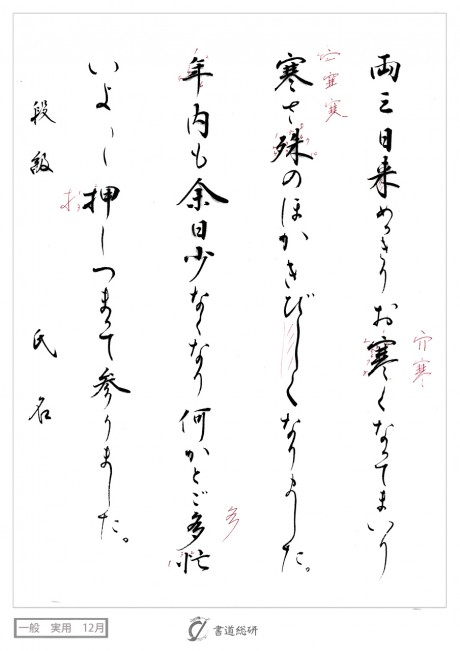 両三日来めっきりお寒くなってまいり
寒さ殊のほかきびしくなりました。
年内も余日少なくなり何かとご多忙
いよいよ押しつまって参りました。
段級 氏名
寒
寒
多
一般 実用 12月
書道総研